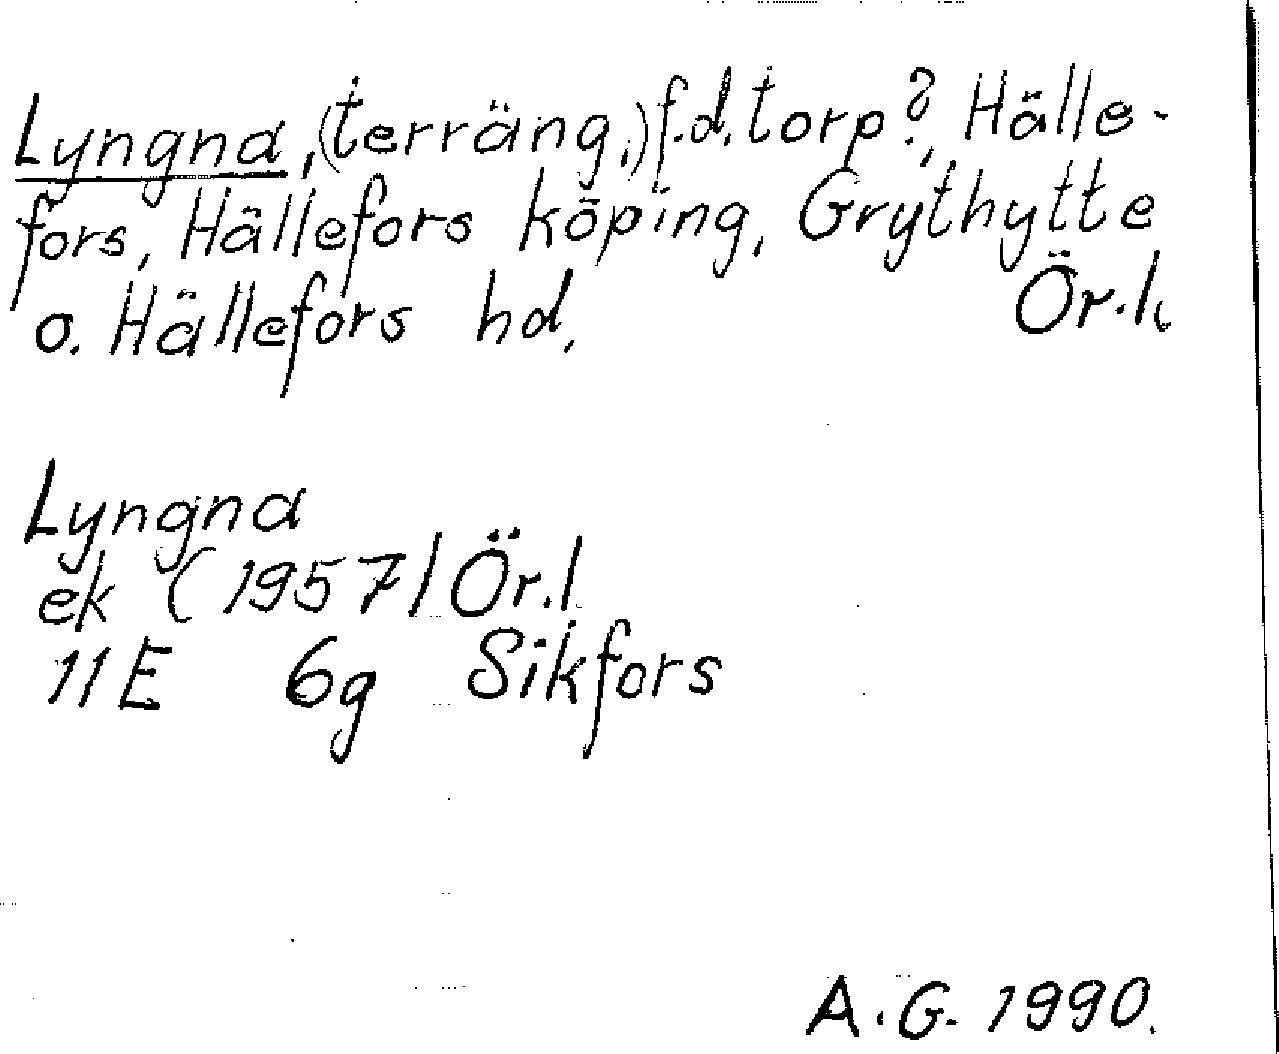 Lyngna, (terräng,) f.d. torp?, Hälle-
fors, Hällefors köping, Grythytte
o. Hällefors hd, Ör.l.
Lyngna
ek (1957) Ör.l.
11E 6g Sikfors
A.G. 1990.